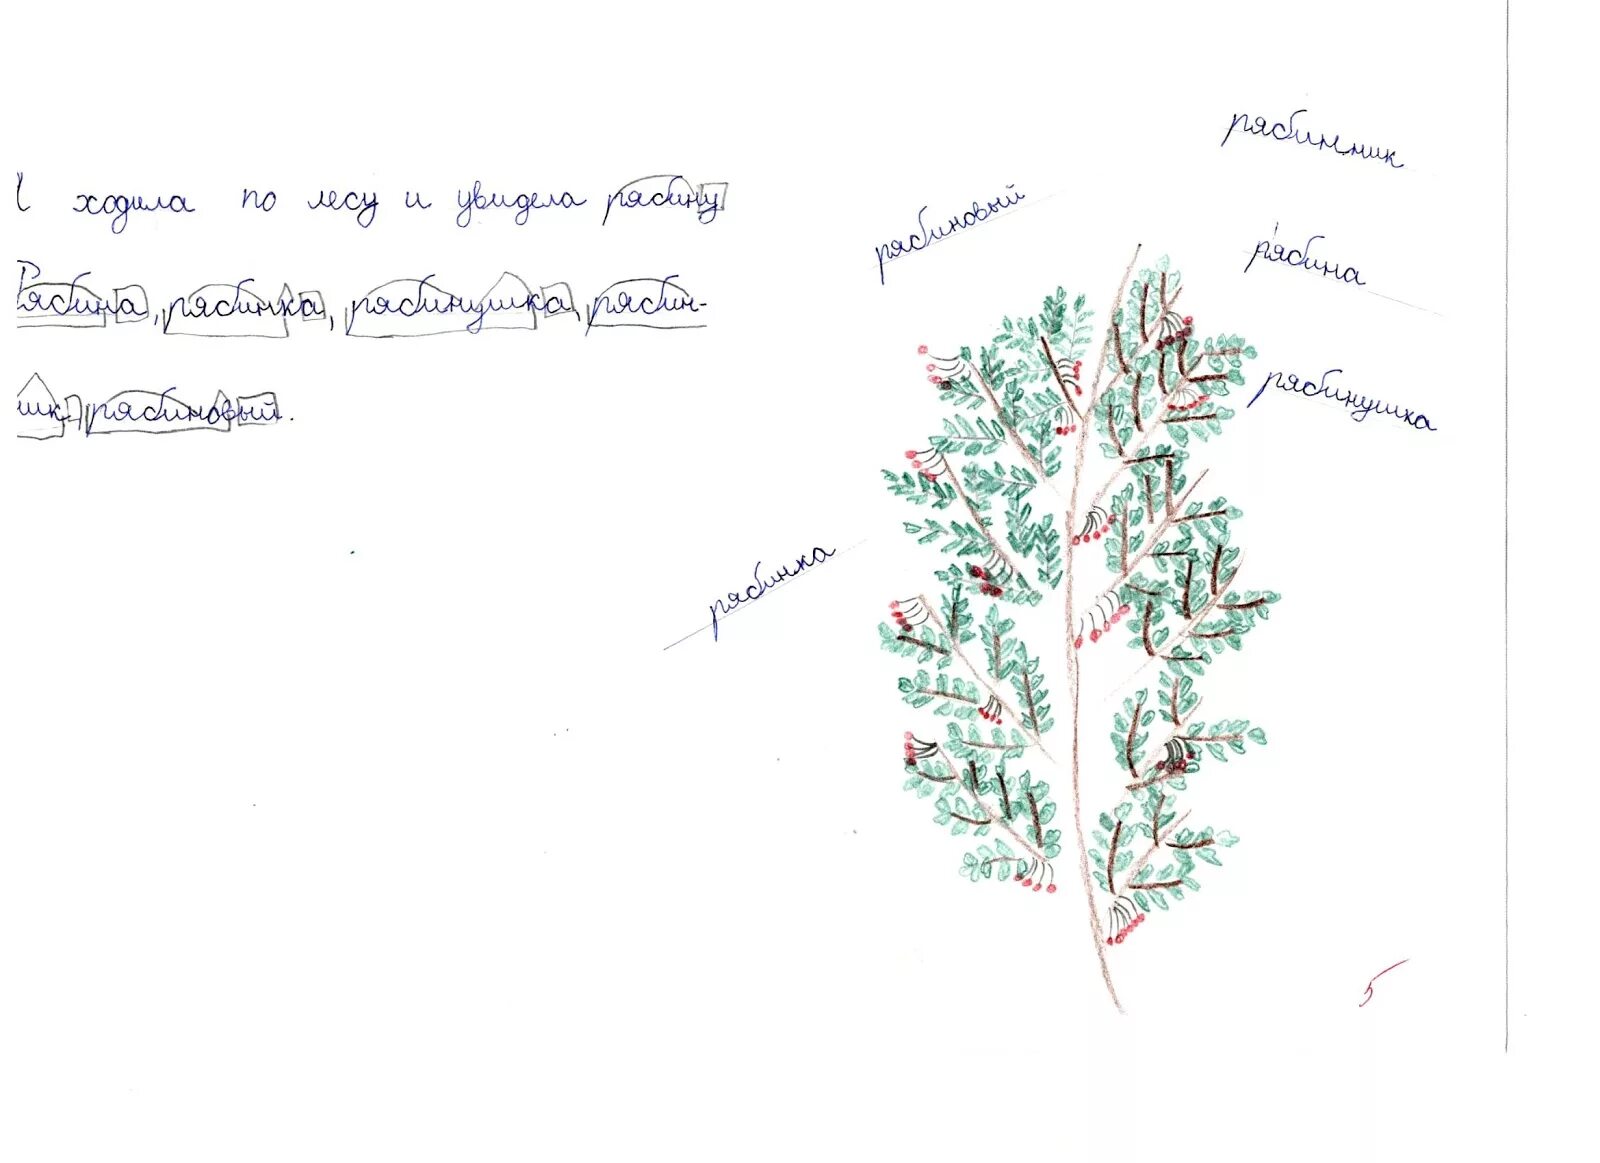 ходила по лесу и увидела рябину
Рябина, рябинка, рябинушка, рябин-
рябиновый.
рябинник
рябиновый
рябина
рябинушка
рябинка
5